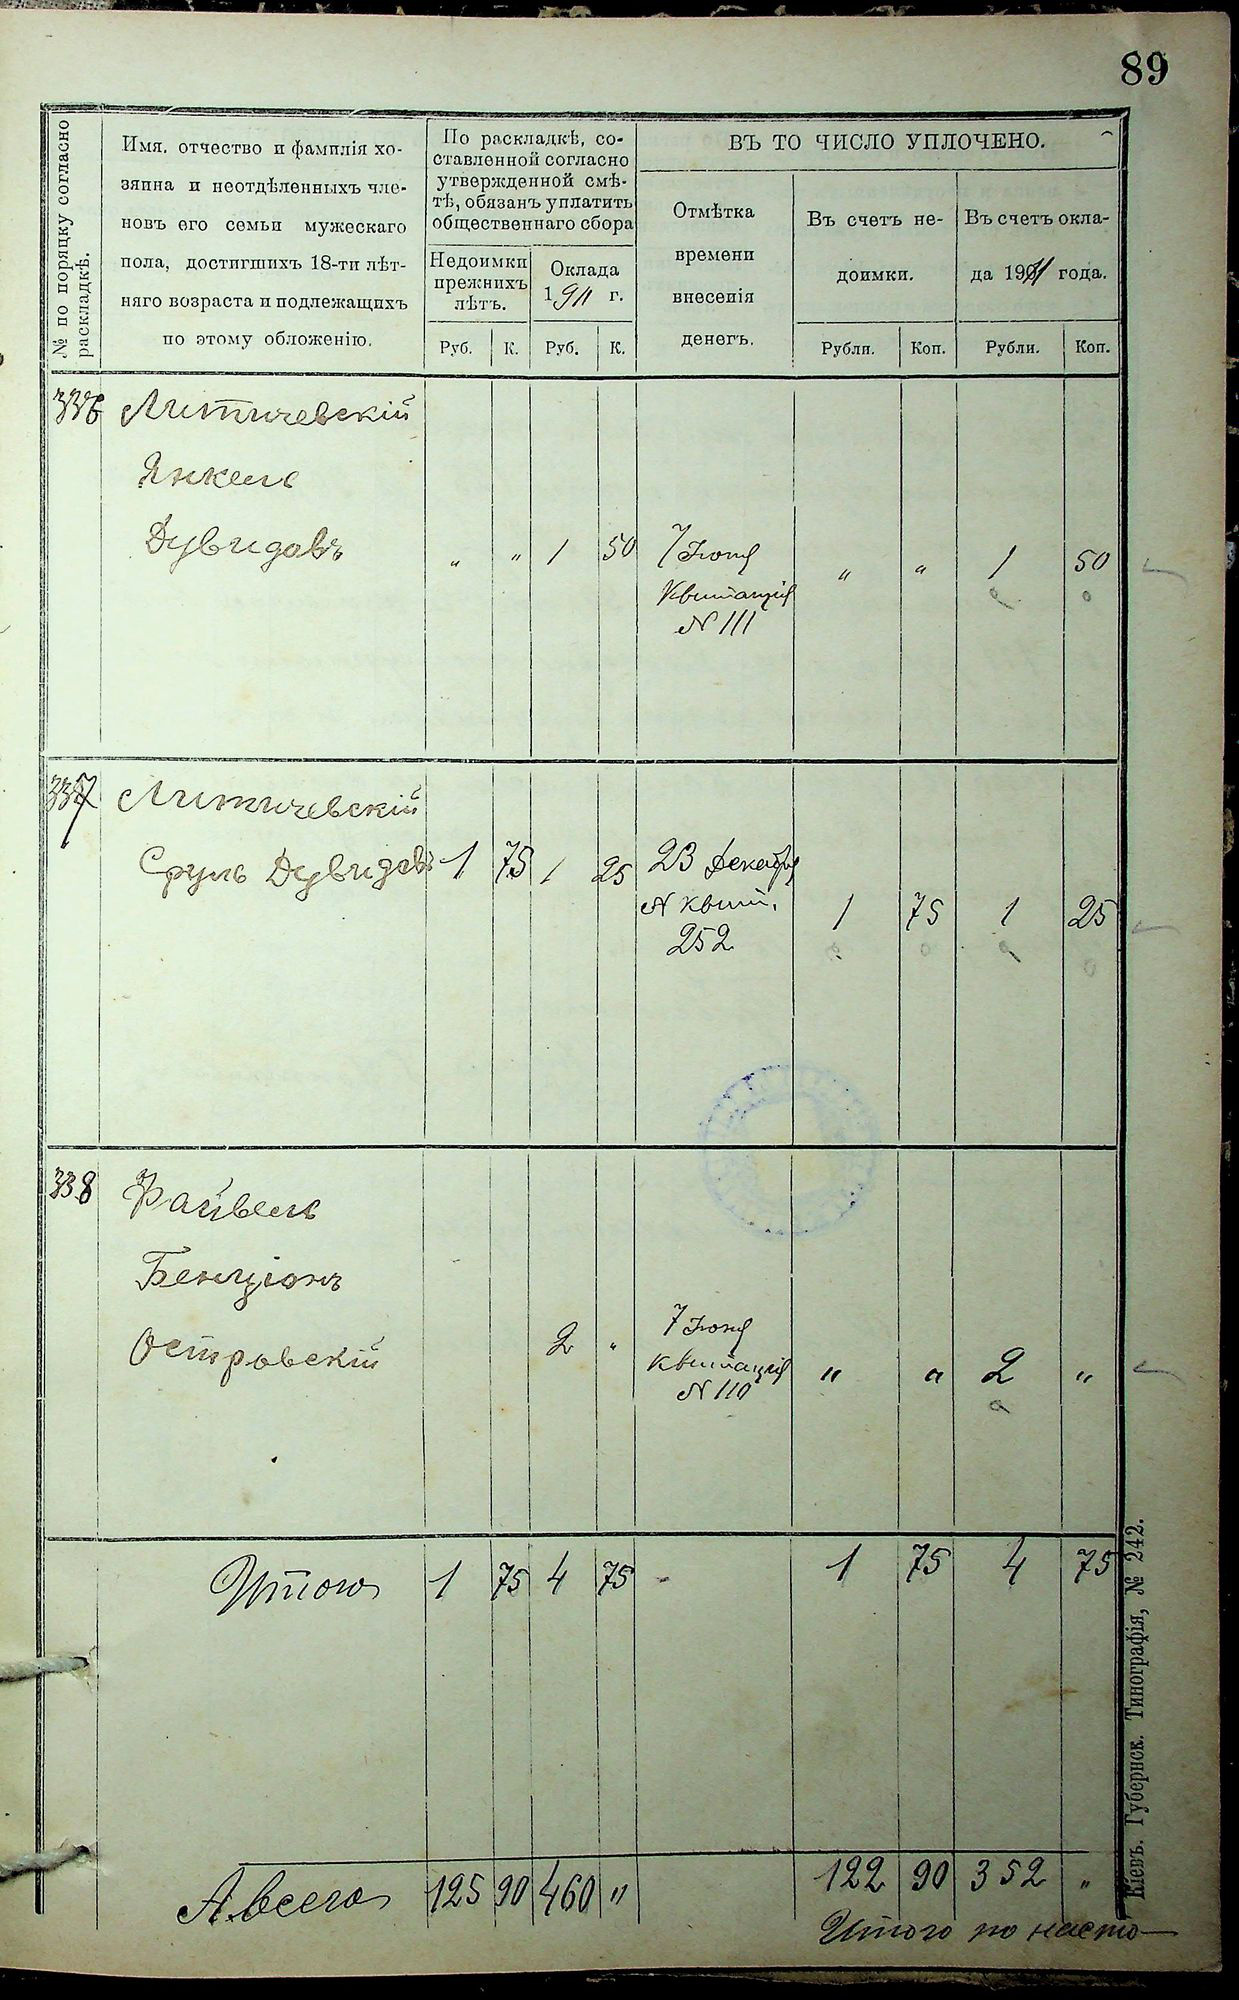 89
№ по поряцку согласно
раскладкѣ.
Имя, отчество и фамилія хо-
зяина и неотдѣленныхъ чле-
новъ его семьи мужескаго
пола, достигшихъ 18-ти лѣт-
няго возраста и подлежащихъ
по этому обложенію.
По раскладкѣ, со-
ставленной согласно
утвержденной смѣ-
тѣ, обязанъ уплатить
общественнаго сбора
Недоимки
прежнихъ
лѣтъ.
Оклада
1911 г.
Руб. К. Руб. К.
ВЪ ТО ЧИСЛО УПЛОЧЕНО.
Отмѣтка
времени
внесенія
денегъ.
Въ счетъ не-
доимки.
Въ счетъ окла-
да 1911 года.
Рубли. Коп. Рубли. Коп.
336 Литичевскій
Янкель
Дувидовъ " " 1 50 7 Іюня " " 1 50
Квитанція
N 111
337 Литичевскій
Сруль Дувидовъ 1 75 1 25 23 Декабря
N квит. 1 75 1 25
252
338 Файвель
Бенціонъ
Островскій 2 " 7 Іюня
Квитанція " " 2 "
N 110
Итого 1 75 4 75 - 1 75 4 75
А всего 125 90 460 " 122 90 352 "
Итого по насто-
Кіевъ. Губернск. Типографія, № 242.